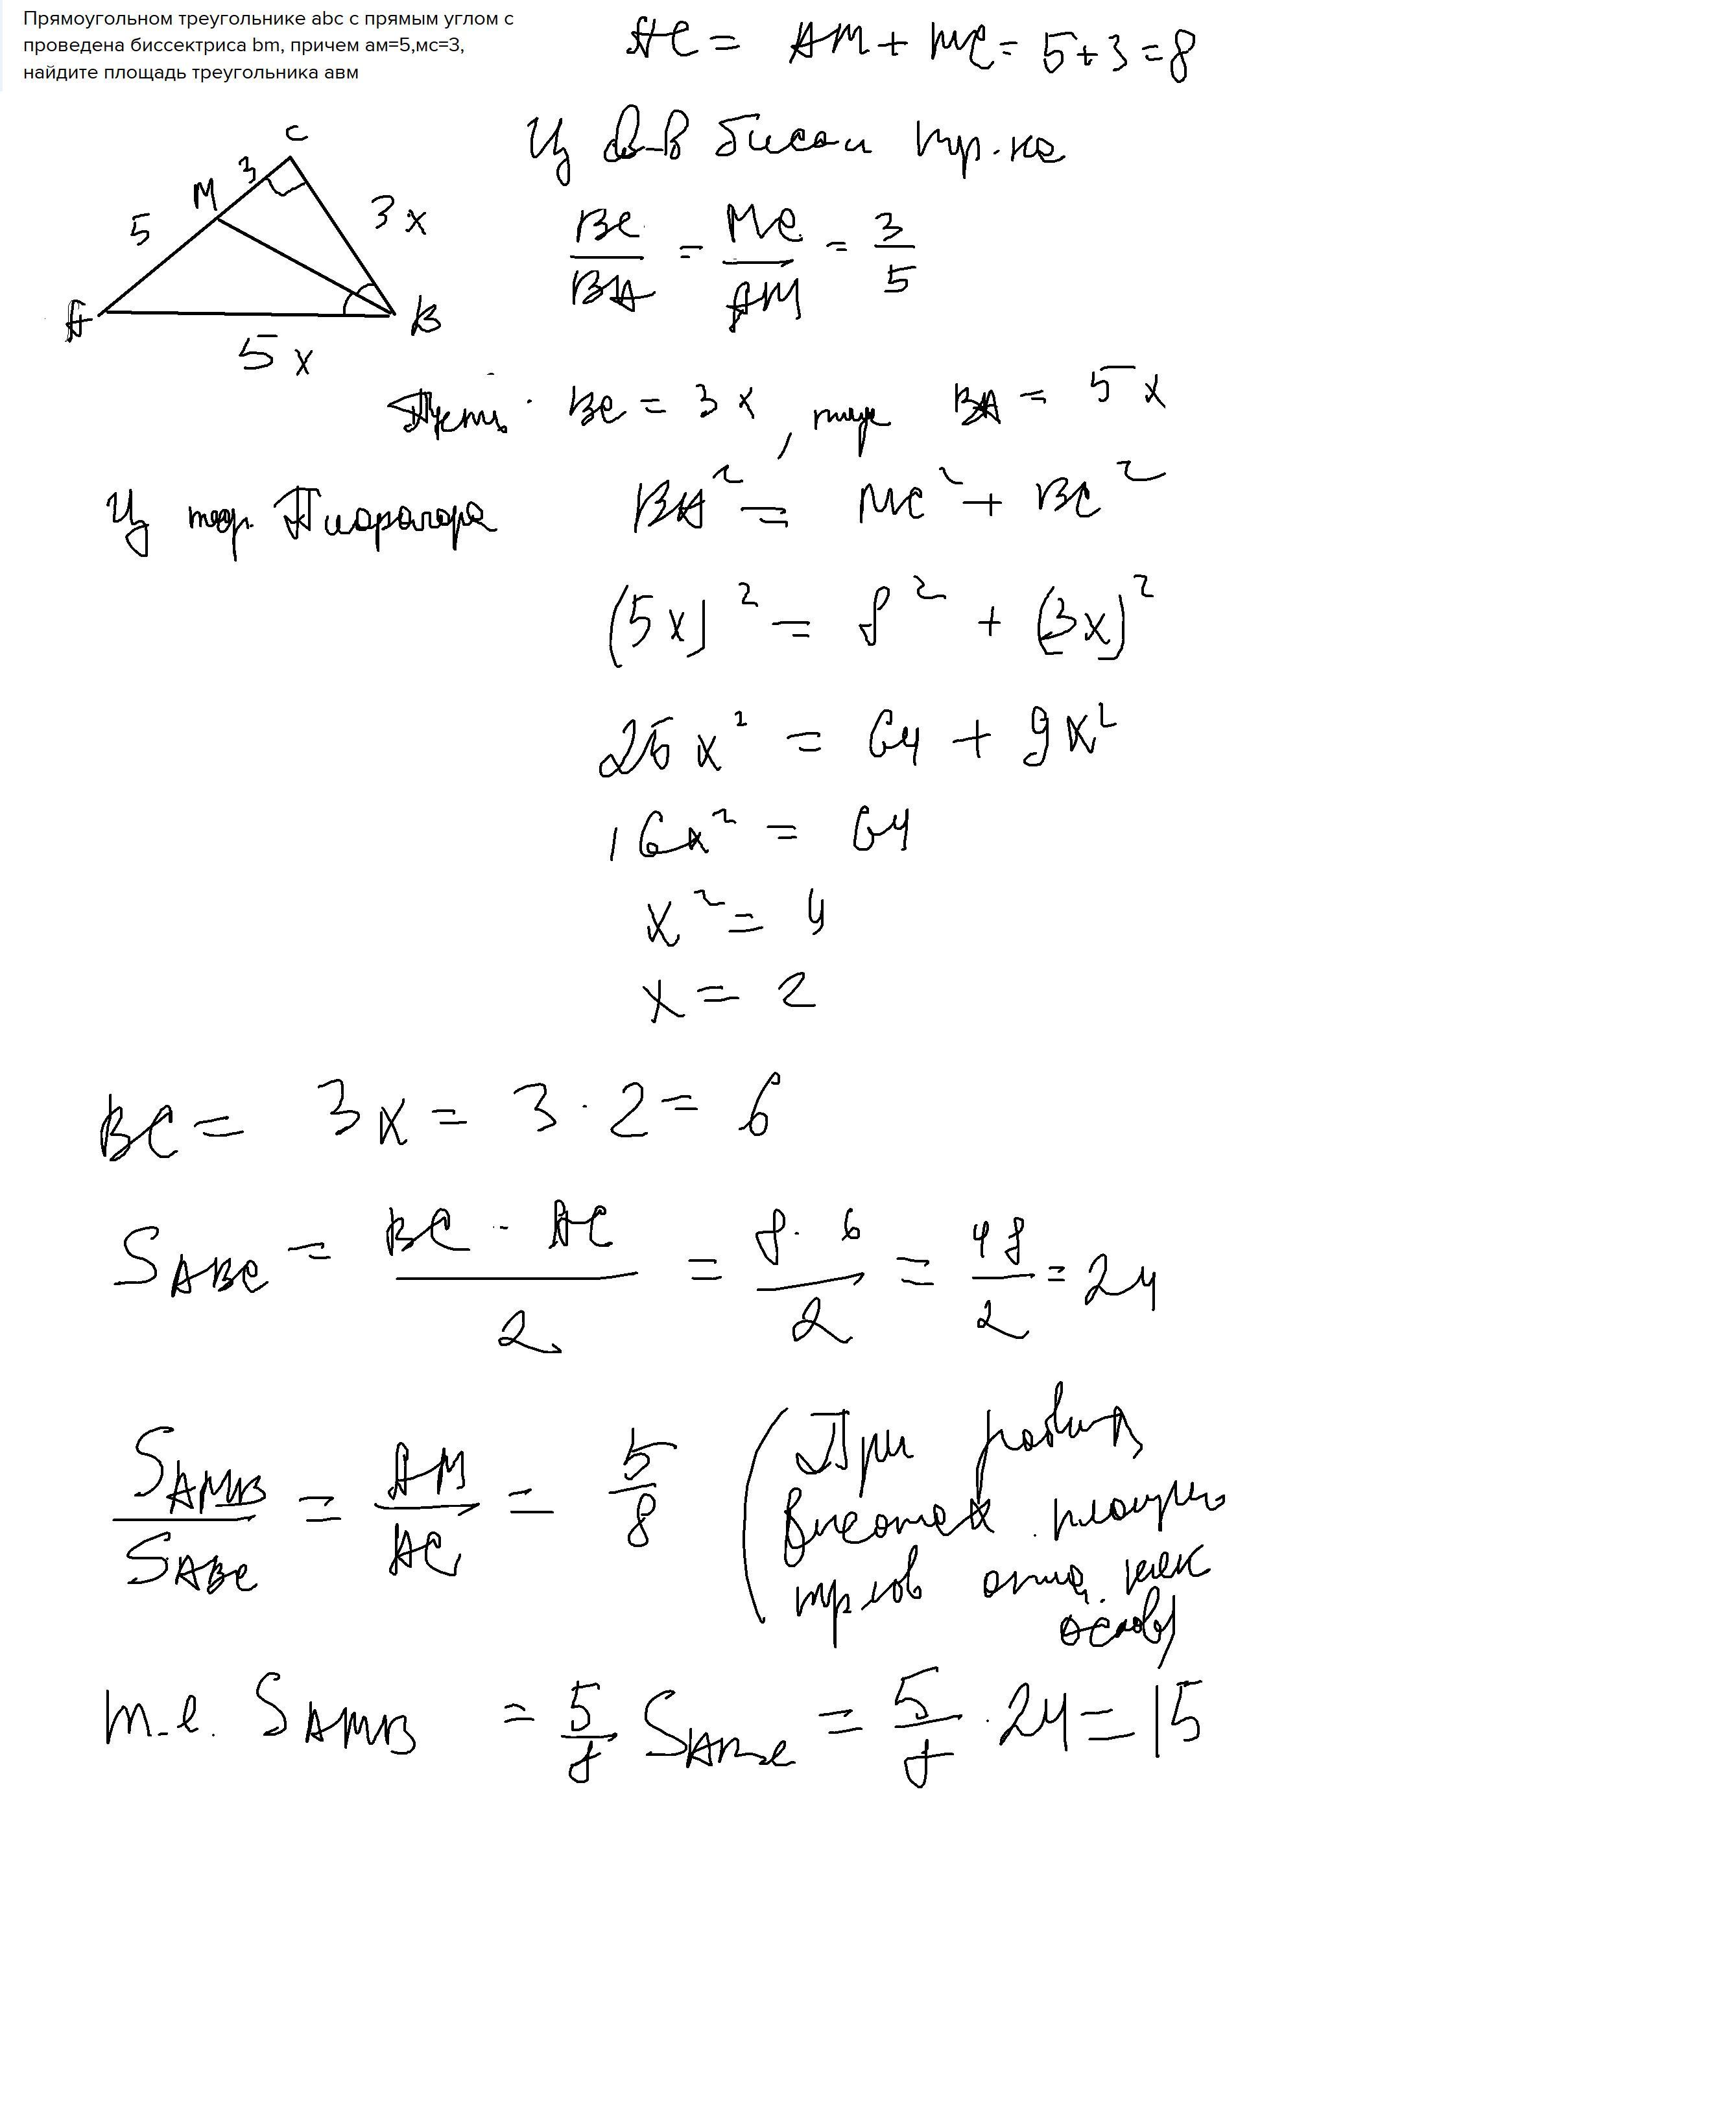 Прямоугольном треугольнике abc с прямым углом с
проведена биссектриса bm, причем ам=5,мс=3,
найдите площадь треугольника авм
AC = AM + MC = 5+3=8
C
3
M
5
3x
A
B
5x
Из св-в биссек тр-ка
BC/BA = MC/AM = 3/5
Пусть BC = 3x, тогда BA = 5x
Из теор. Пифагора BA² = MC² + BC²
(5x)² = 8² + (3x)²
25x² = 64 + 9x²
16x² = 64
x² = 4
x = 2
BC = 3x = 3 · 2 = 6
S ABC = BC · AC / 2 = 8 · 6 / 2 = 48/2 = 24
S AMB / S ABC = AM / AC = 5/8
(При равных
высотах площади
тр-ков относ. как
основ)
т.е. S AMB = 5/8 S ABC = 5/8 · 24 = 15